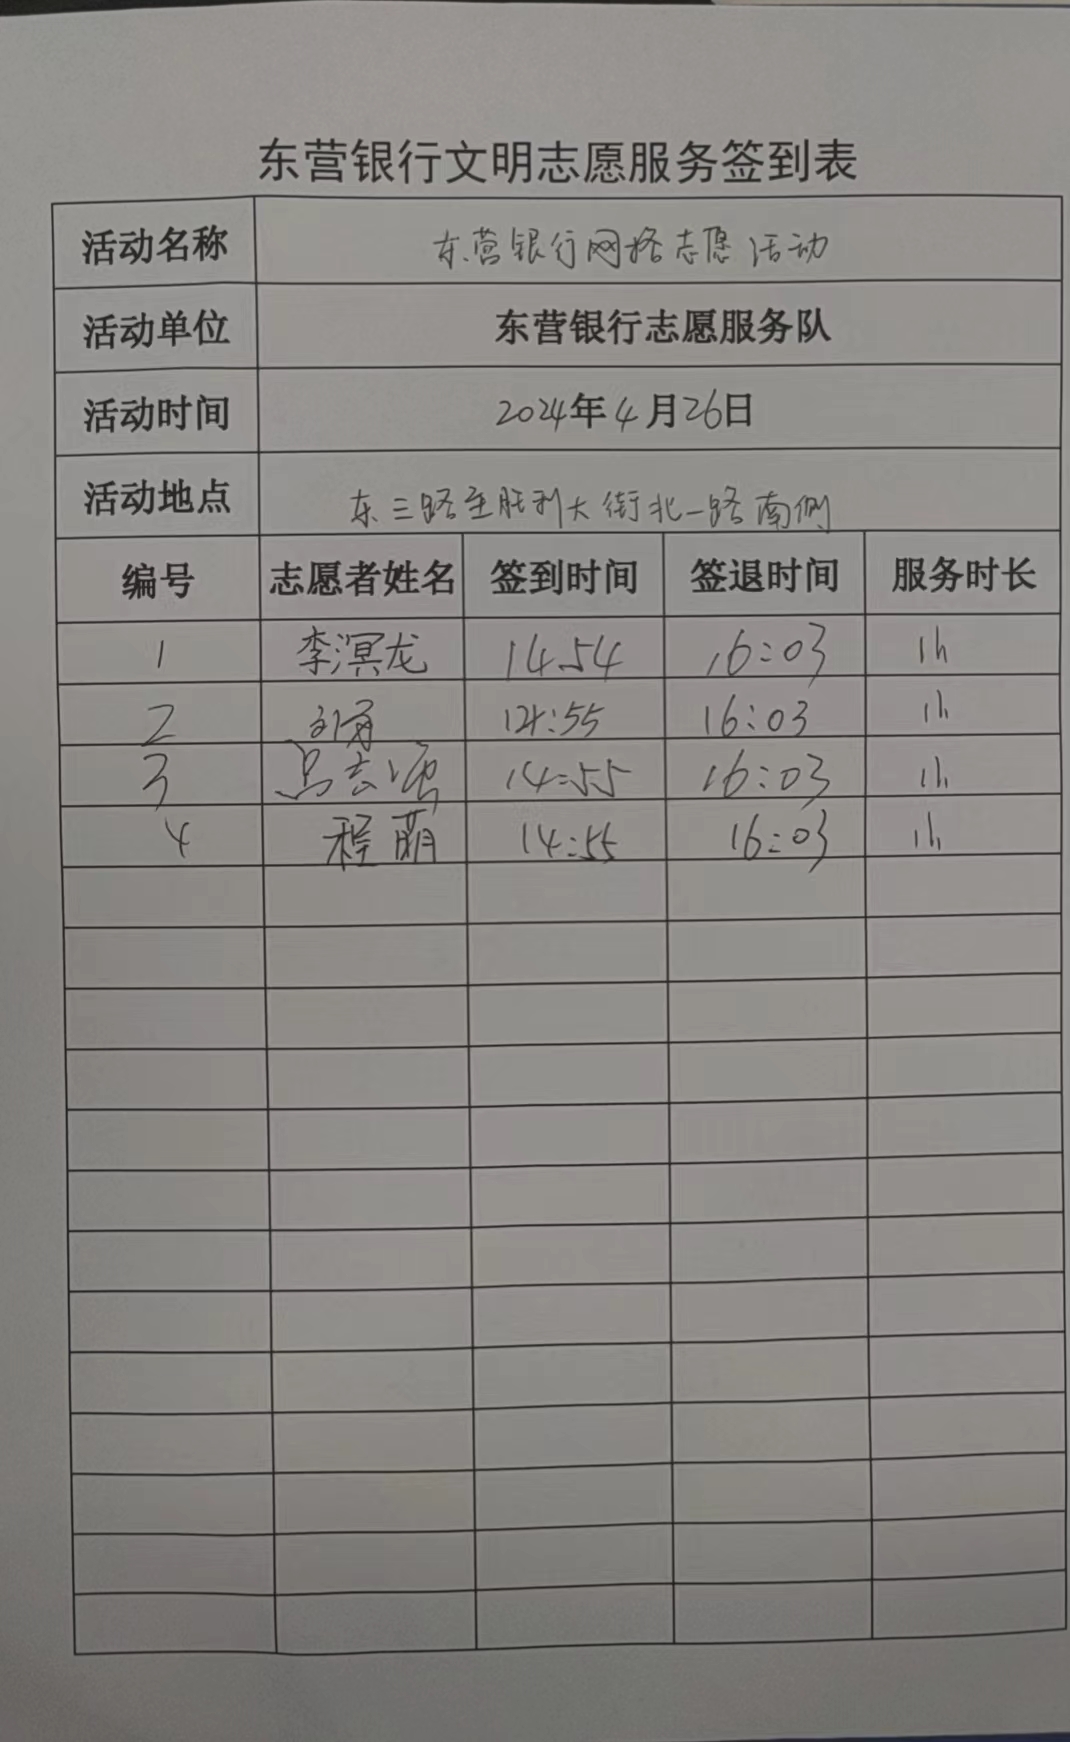 东营银行文明志愿服务签到表
活动名称 东营银行网格志愿活动
活动单位 东营银行志愿服务队
活动时间 2024年4月26日
活动地点 东三路至胜利大街北一路南侧
编号 志愿者姓名 签到时间 签退时间 服务时长
1 李溟龙 14:54 16:03 1h
2 14:55 16:03 1h
3 14:55 16:03 1h
4 程萌 14:55 16:03 1h